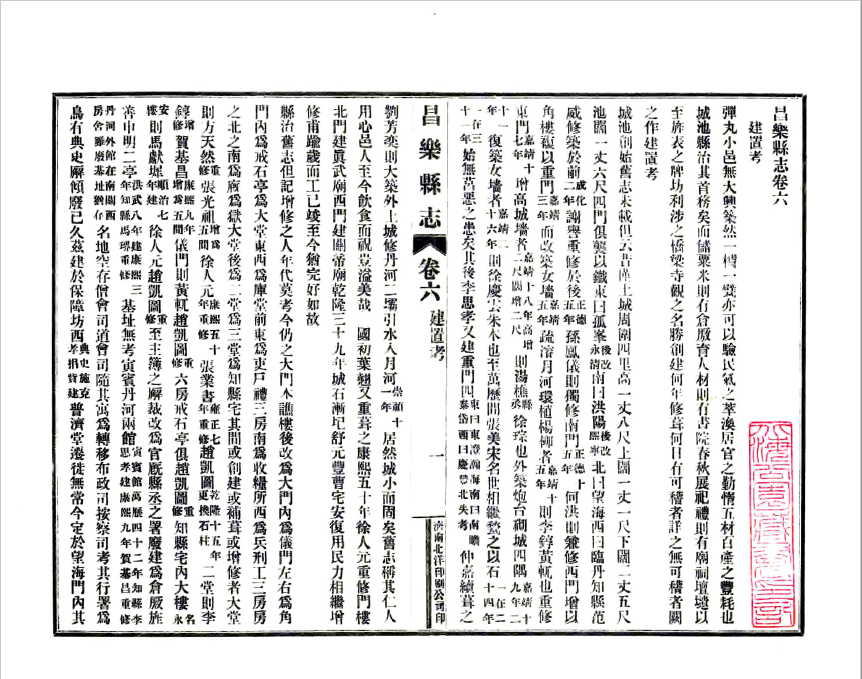 昌樂縣志卷六
建置考
彈丸小邑無大興築然一樽一甓亦可以驗民氣之萃渙居官之勤惰五材百產之豐耗也
城池縣治其首務矣而儲粟米則有倉廒育人材則有書院春秋展祀禮則有廟祠壇壝以
至旌表之牌坊利涉之橋梁寺觀之名勝創建何年修葺何日有可稽者詳之無可稽者闕
之作建置考
城池創始舊志未載但云昔僅土城周圍四里高一丈八尺上闊一丈一尺下闊二丈五尺
池闊一丈六尺四門俱甃以鐵東曰孤峯後改永清南曰洪陽後改熙寧北曰望海西曰臨丹知縣范
威修築於前成化二年謝譽重修於後正德五年孫鳳儀則獨修南門正德十五年何洪則兼修西門增以
角樓復以重門嘉靖三年而改築女墻嘉靖五年疏濬月河環植楊柳者嘉靖十五年則李錞黃軏也重修
東門嘉靖十七年增高城墻者嘉靖十八年高增二尺闊增二尺則湯樵縣丞徐琮也外築炮台禂城四隅嘉靖十九年二
十一年復築女墻者嘉靖二十六年則徐慶雲朱木也至萬曆間張美宋名世相繼甃之以石一在二十四年
一在三十一年始無莴惡之患矣其後李思孝又建重門四東曰東澄瀚海南曰南瞻泰岱西曰慶豐北失考仲嘉續葺之
昌樂縣志
卷六
建置考
一
濟南北洋印刷公司印
劉芳奕則大築外土城修丹河二壩引水入月河崇禎十一年居然城小而固矣舊志稱其仁人
用心邑人至今飲食而祝豈溢美哉 國初葉翹又重葺之康熙五十年徐人元重修門樓
北門建眞武廟西門建關帝廟乾隆三十九年城石漸圮舒元豐曹宅安復用民力相繼增
修甫踰歲而工已竣至今猶完好如故
縣治舊志但記增修之人年代莫考今仍之大門本譙樓後改爲大門內爲儀門左右爲角
門內爲戒石亭爲大堂東西爲庫堂前東爲吏戶禮三房南爲收糧所西爲兵刑工三房房
之北之南爲廒爲獄大堂後爲二堂爲三堂爲知縣宅其間或創建或補葺或增修者大堂
則方天然重修張光祖增爲五間徐人元康熙五十年重修張業書雍正七年重修趙凱圖乾隆十五年更換石柱二堂則李
錞增修賀基昌康熙九年增爲五間儀門則黃軏趙凱圖重修六房戒石亭俱趙凱圖重修知縣宅內大樓名永
安樓則馬獻墀順治七年建徐人元趙凱圖重修至主簿之廨裁改爲官廐縣丞之署廢建爲倉廒旌
善申明二亭洪武八年建康熙三年知縣馬璟重修基址無考寅賓丹河兩館寅賓館萬曆四十二年知縣李思孝建康熙九年賀基昌重修
丹河外館在南關西房舍雖廢基址猶存名地空存僧會司道會司隨其寓爲轉移布政司按察司考其行署爲
烏有典史廨傾廢已久茲建於保障坊西典史施克孝捐貲建普濟堂遷徙無常今定於望海門內其